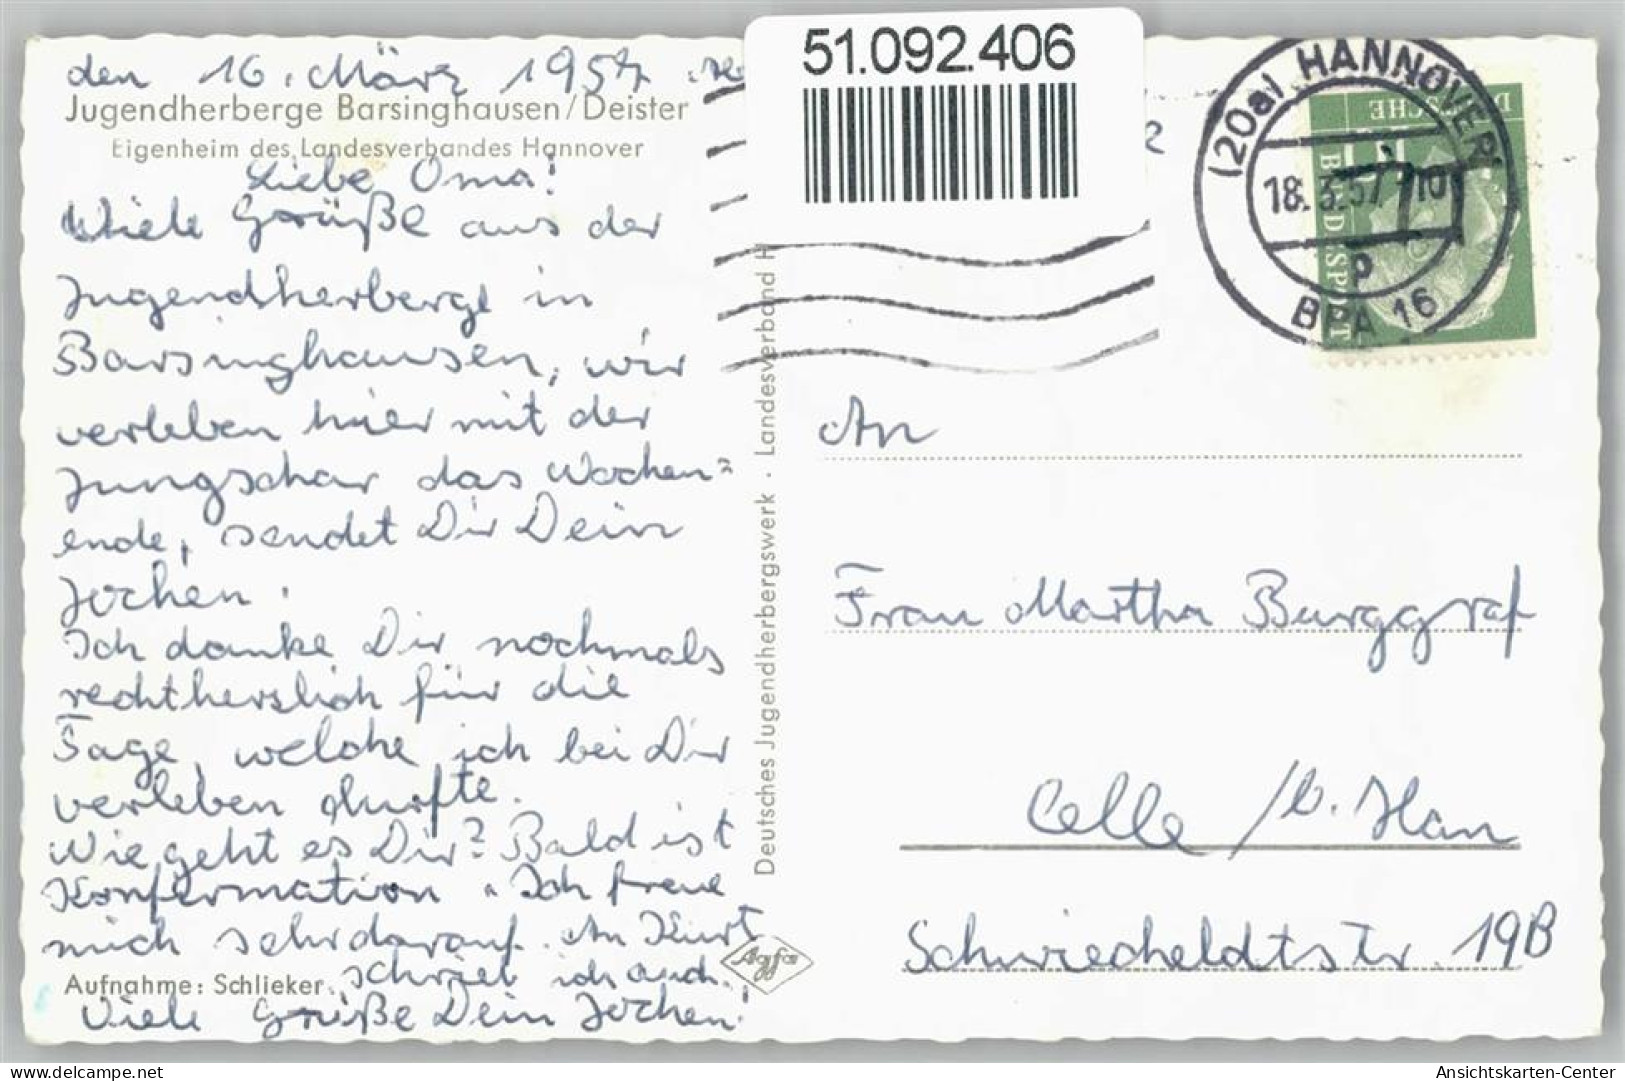 den 16. März 1957.
Jugendherberge Barsinghausen/Deister
Eigenheim des Landesverbandes Hannover
Liebe Oma!
Viele Grüße aus der
Jugendherberge in
Barsinghausen, wir
verleben hier mit der
Jungschar das Wochen=
ende, sendet Dir Dein
Jochen.
Ich danke Dir nochmals
rechtherzlich für die
Tage, welche ich bei Dir
verleben durfte.
Wie geht es Dir? Bald ist
Konfermation. Ich freue
mich sehr darauf. An Kurt
schrieb ich auch.
Aufnahme: Schlieker
Viele Grüße Dein Jochen!
Agfa
Deutsches Jugendherbergswerk · Landesverband H
51.092.406
(20a) HANNOVER
18.3.57-10
P
BPA 16
DEUTSCHE
BUNDESPOST
An
Frau Martha Burggraf
Celle /b. Han
Schwiecheldtstr. 19B
www.ansichtskarten-center.de
Ansichtskarten-Center